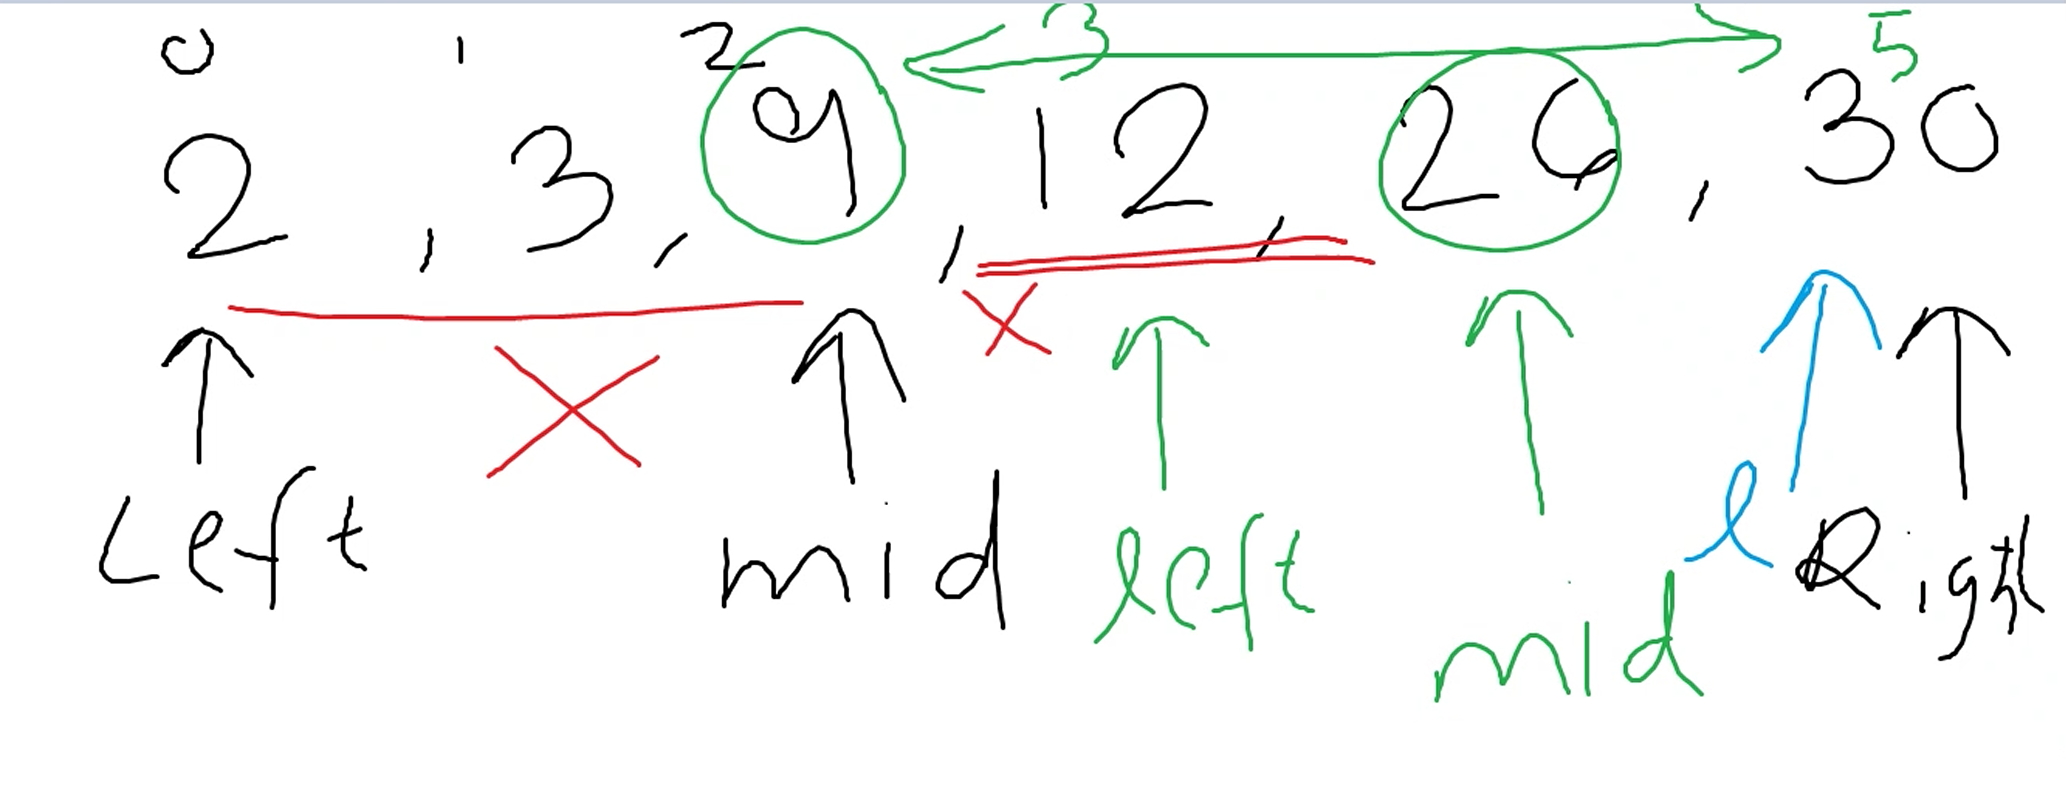 0 1 2 3 5
2 , 3 , 9 , 12 , 20 , 30
Left mid left mid l Right